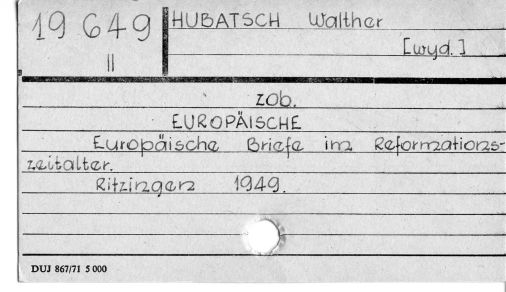 19 649
II
HUBATSCH Walther
[wyd.]
zob.
EUROPÄISCHE
Europäische Briefe im Reformations-
zeitalter.
Ritzingen 1949.
DUJ 867/71 5 000